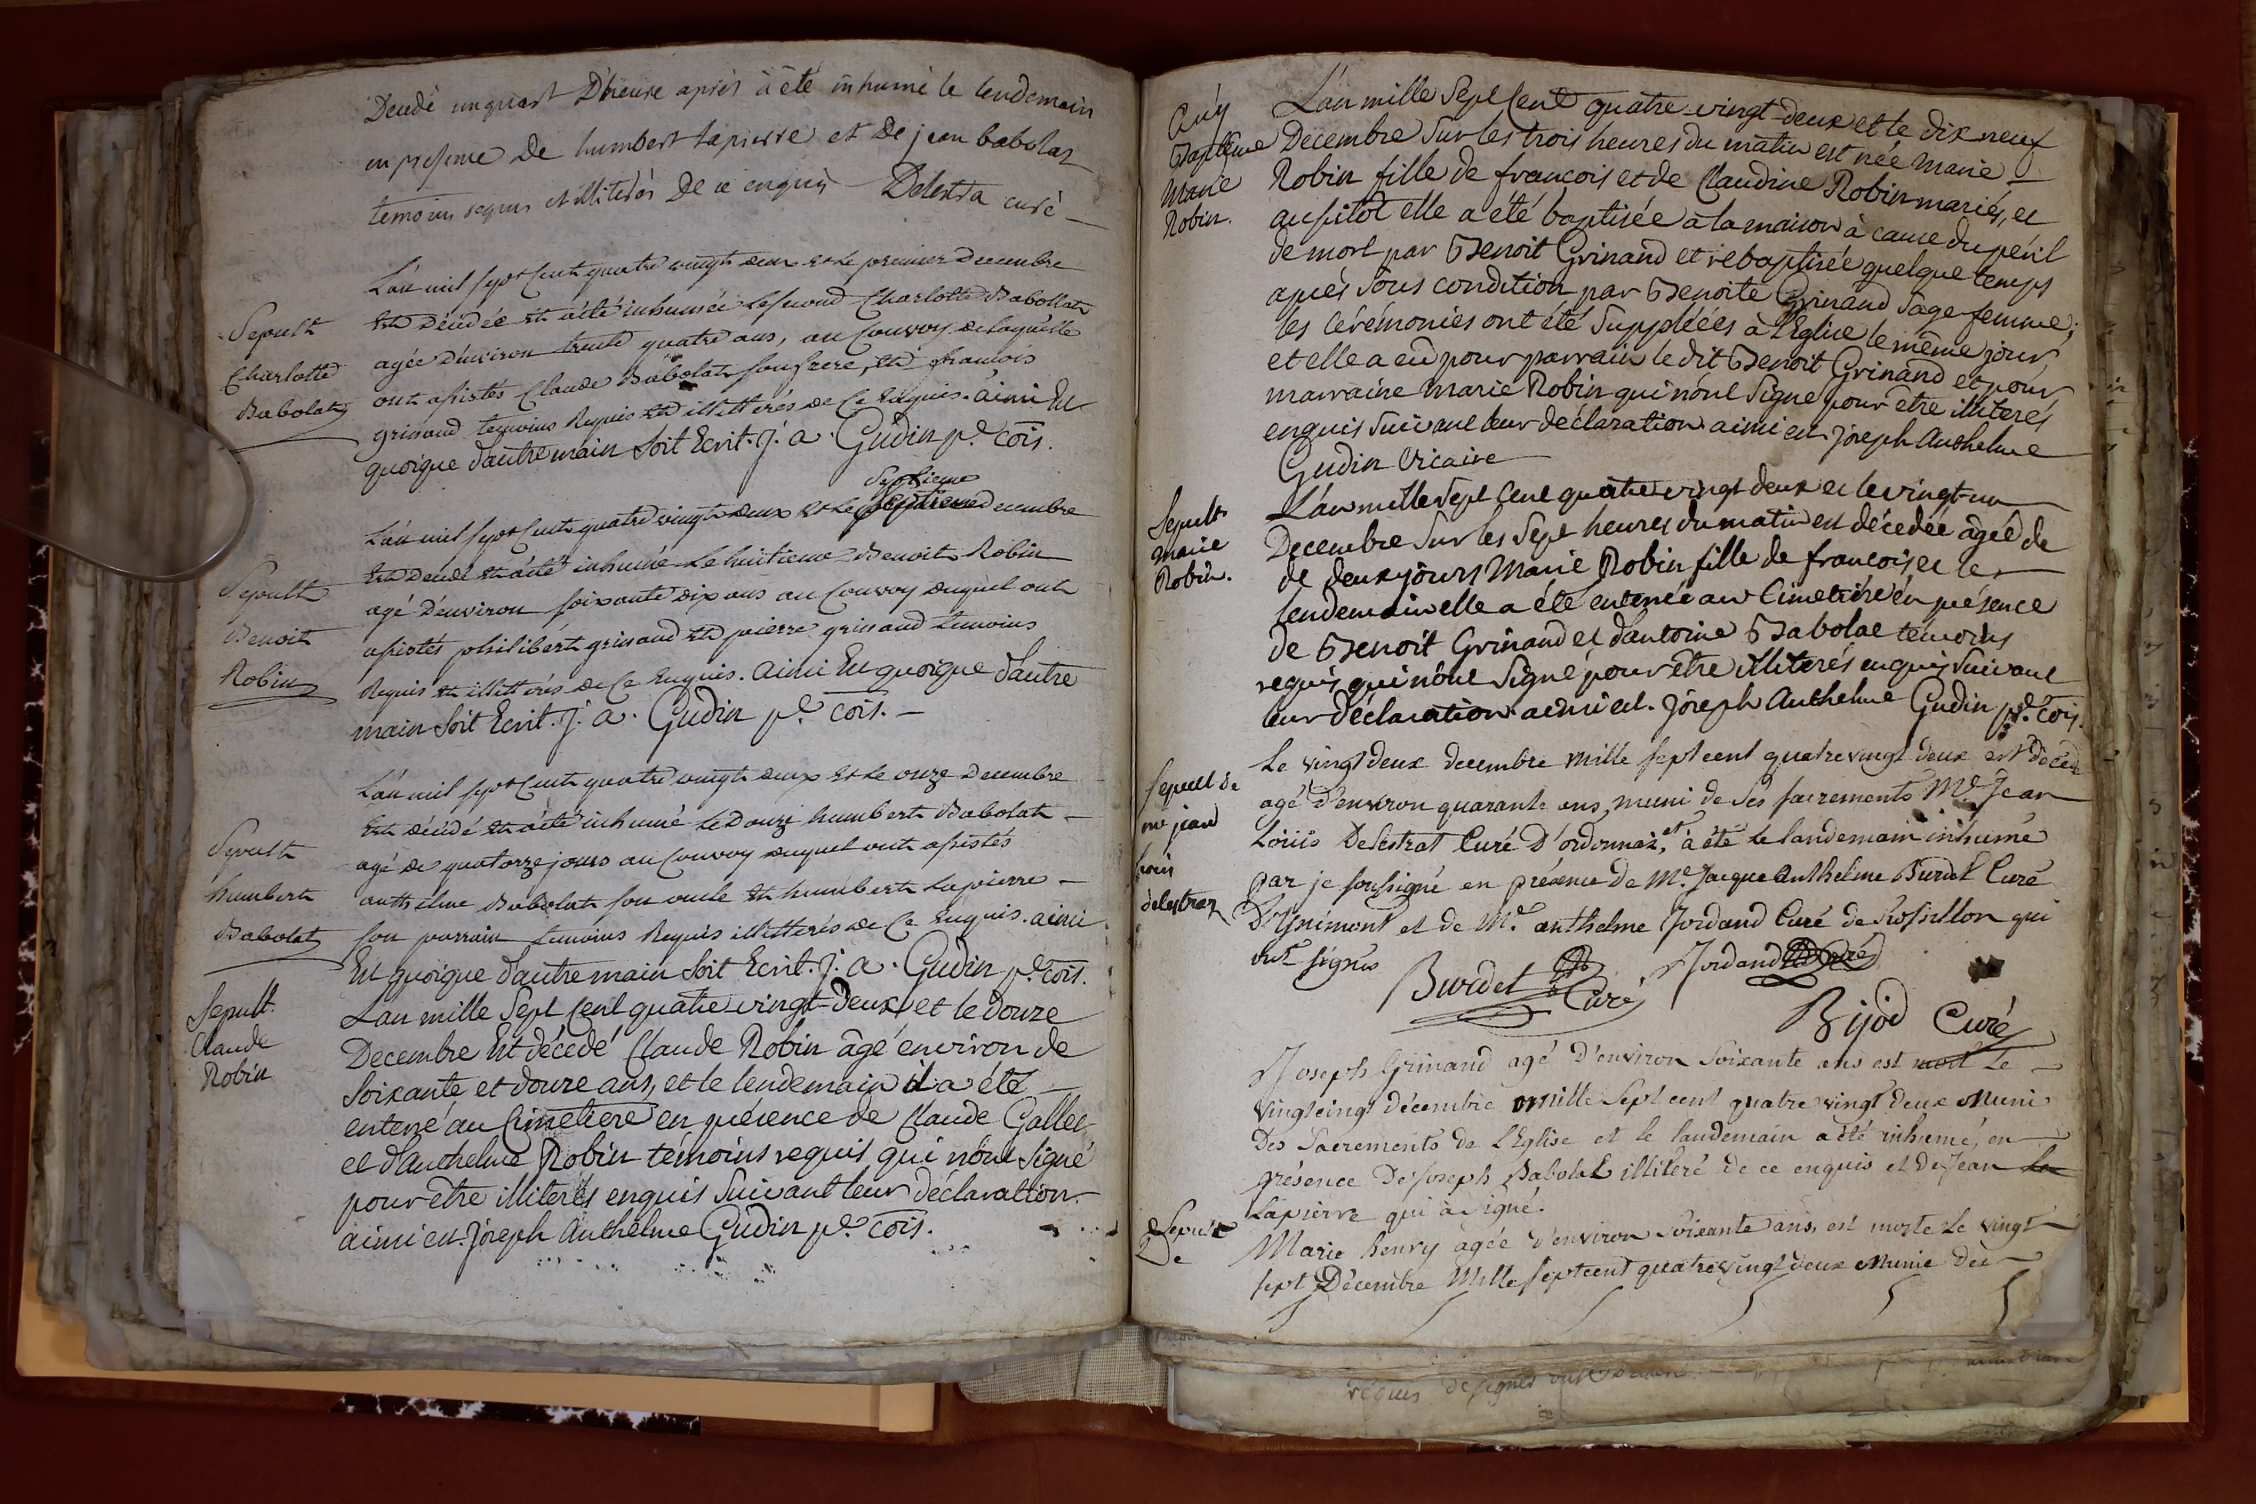 Decedé un quart D'heure aprés à été inhumé le lendemain
en presence De humbert Lapierre et De jean babolat
temoins requis et illiterés De ce enquis Delestra curé
Sepult
Charlotte
Babolat
L'an mil sept Cent quatre vingt deux et Le premier Decembre
Est Décédée et a été inhumée Le second Charlotte Babollat
agée d'environ trente quatre ans, au Convoy de laquelle
ont assistés Claude Babolat son frere, et francois
grinand temoins Requis et illitterés de Ce Enquis. ainsi Est
quoique d'autre main soit Ecrit. j. a. Gudin p.e cois.
Sepult
Benoit
Robin
septieme
L'an mil sept Cent quatre vingt deux et Le septieme Decembre
Est Decedé et a été inhumé Le huitieme Benoit Robin
agé D'environ soixante dix ans au Convoy duquel ont
assistés philibert grinand et pierre grinand temoins
Requis et illitterés de Ce Enquis. ainsi Est quoique d'autre
main soit Ecrit. j. a. Gudin p.e cois.
Sepult
humbert
Babolat
L'an mil sept Cent quatre vingt deux et Le onze Decembre
Est décédé et a été inhumé Le Douze humbert Babolat
agé de quatorze jours au Convoy duquel ont assistés
anthelme Babolat son oncle et humbert Lapierre
son parrain temoins Requis illitterés de Ce Enquis. ainsi
Est quoique d'autre main soit Ecrit. j. a. Gudin p.e cois.
Sepult.
Claude
Robin
L'an mille Sept Cent quatre vingt-deux et le douze
Decembre Est décedé Claude Robin âgé environ de
soixante et douze ans, et le lendemain il a été
enterré au Cimetiere en présence de Claude Gallet
et d'Anthelme Robin témoins requis qui n'ont signé
pour être illiterés enquis suivant leur déclaration.
ainsi est. Joseph Anthelme Gudin p.e cois.
Baptême
Marie
Robin.
L'an mille Sept Cent quatre-vingt-deux et le dix neuf
Decembre sur les trois heures du matin est née Marie
Robin fille de francois et de Claudine Robin mariés, et
aussitôt elle a été baptisée à la maison à cause du péril
de mort par Benoit Grinand et rebaptisée quelque temps
après sous condition par Benoite Grinand Sage femme;
les cérémonies ont été suppléées à l'Eglise le même jour,
et elle a eû pour parrain le dit Benoit Grinand et pour
marraine Marie Robin qui n'ont signé pour être illiterés
enquis suivant leur déclaration ainsi est. Joseph Anthelme
Gudin Vicaire
Sepult.
Marie
Robin.
L'an mille sept Cent quatre vingt deux et le vingt-un
Decembre sur les Sept heures du matin est décedée âgée de
de deux jours Marie Robin fille de francois et le
lendemain elle a été enterrée au Cimetiére en présence
de Benoit Grinand et d'antoine Babolat témoins
requis, qui n'ont signé pour être illiterés enquis suivant
leur déclaration ainsi est. Joseph Anthelme Gudin p.e cois.
sepult de
me jean
louis
delestraz
Le vingt deux decembre mille sept cent quatre vingt deux est décedé
agé d'environ quarante ans, muni de ses sacrements Me. Jean
Loüis Delestrat Curé D'ordonnaz, et à été le landemain inhumé
par je soussigné en présence de Me. Jacque Anthelme Burdet Curé
D'Ynimont et de Me. anthelme Jordand Curé de Rossillon qui
ont signés
Burdet Curé
Jordand Curé
Bijod Curé
Joseph Grinand agé D'environ soixante ans est mort Le
vingt cinqt décembre mille sept cent quatre vingt deux muni
Des Sacrements de L'Eglise et le landemain a été inhumé, en
présence De joseph Babolat illiteré de ce enquis et de Jean La
Lapierre qui à signé.
Sepult
de
Marie henry agée d'environ soixante ans, est morte Le vingt
sept Décembre Mille sept cent quatre vingt deux Munie des
requis de signer